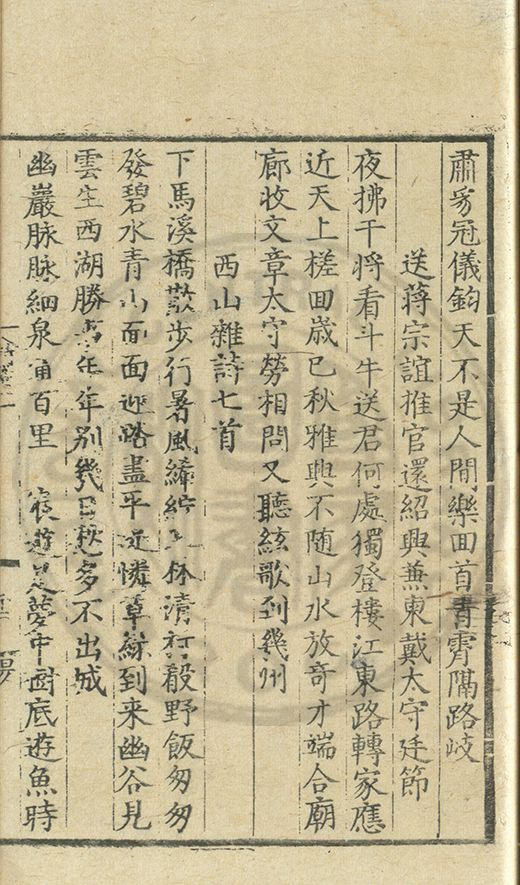 肅豸冠儀鈞天不是人間樂回首青霄隔路岐
送蔣宗誼推官還紹興兼柬戴太守廷節
夜拂干將看斗牛送君何處獨登樓江東路轉家應
近天上槎回歲已秋雅興不随山水放奇才端合廟
廊收文章太守勞相問又聽絃歌到幾州
西山雜詩七首
下馬溪橋散步行暑風絺綌杯清村殽野飯匆匆
發碧水青山面面迎路盡平堤憐草緑到來幽谷見
雲生西湖勝年年别幾日多不出城
幽巖脉脉細泉百里遊是夢中树底遊魚時